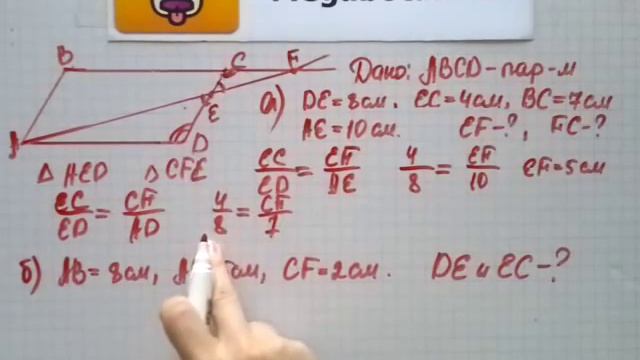 B C F
A E D
Дано: ABCD - пар-м
а) DE = 8 см. EC = 4 см, BC = 7 см
AE = 10 см. EF - ?, FC - ?
△ AED △ CFE EC/ED = EF/AE 4/8 = EF/10 EF = 5 см
EC/ED = CF/AD 4/8 = CF/7
б) AB = 8 см, см, CF = 2 см. DE и EC - ?